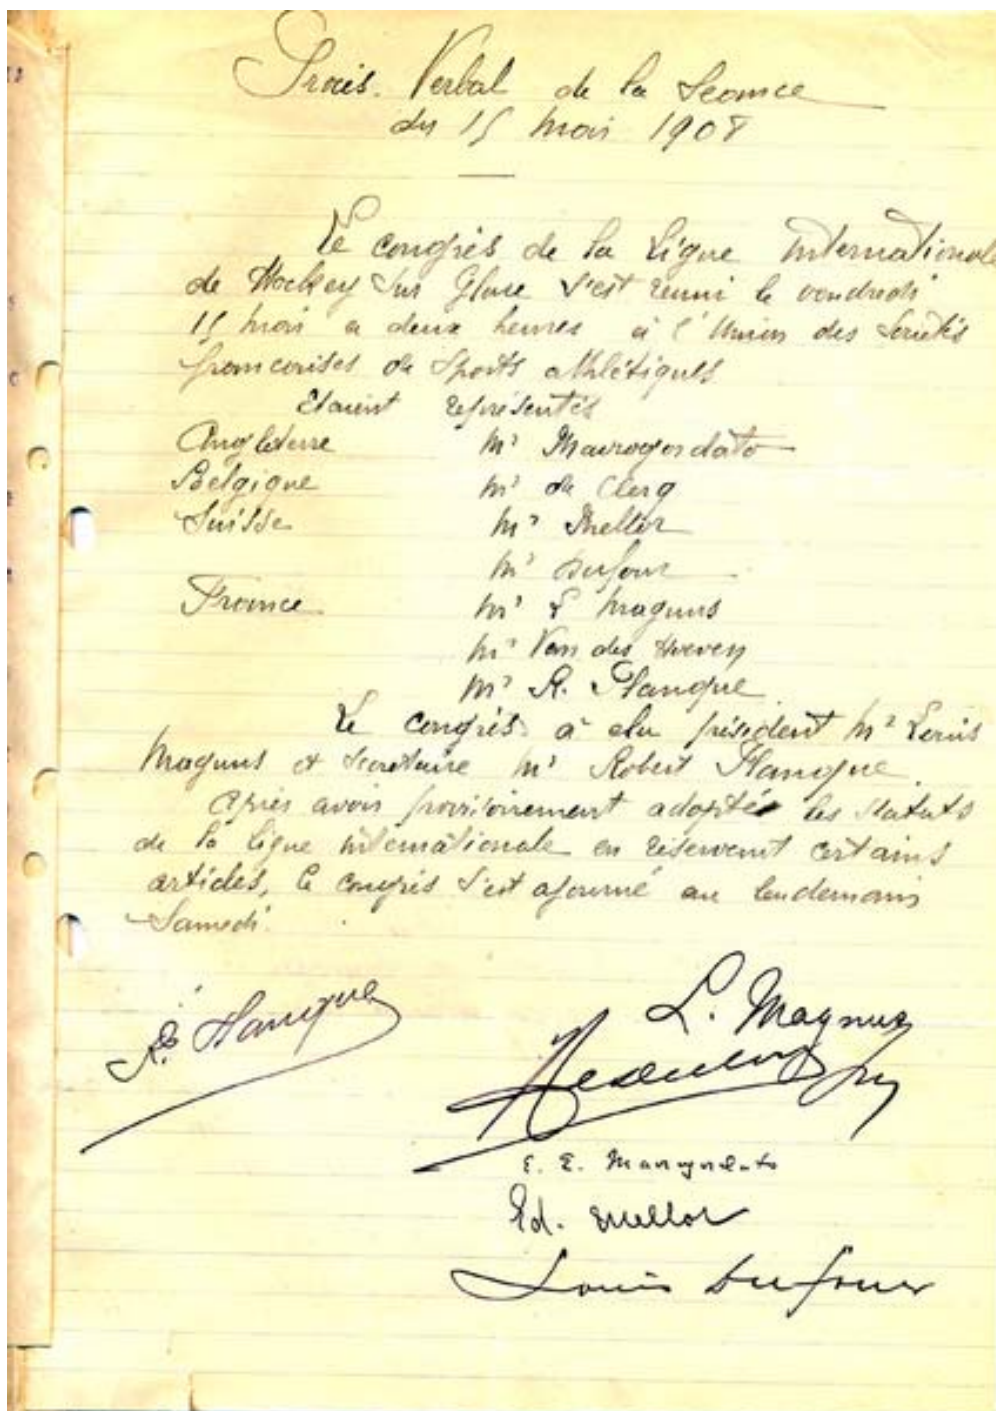 Procès. Verbal de la Séance
du 15 mai 1908
Le congrès de la Ligue internationale
de Hockey sur Glace s'est réuni le vendredi
15 mai a deux heures à l'Union des Sociétés
françaises de Sports athlétiques
Etaient représentés
Angleterre Mr Mavrogordato
Belgique Mr de Clerq
Suisse Mr Mellor
Mr Dufour
France Mr L Magnus
Mr Van der Hoeven
Mr R. Planque
Le congrès à élu président Mr Louis
Magnus et secrétaire Mr Robert Planque.
Après avoir provisoirement adopté les statuts
de la ligue internationale en réservant certains
articles, le congrès s'est ajourné au lendemain
Samedi.
R. Planque
L. Magnus
E. E. Mavrogordato
Ed. Mellor
Louis Dufour